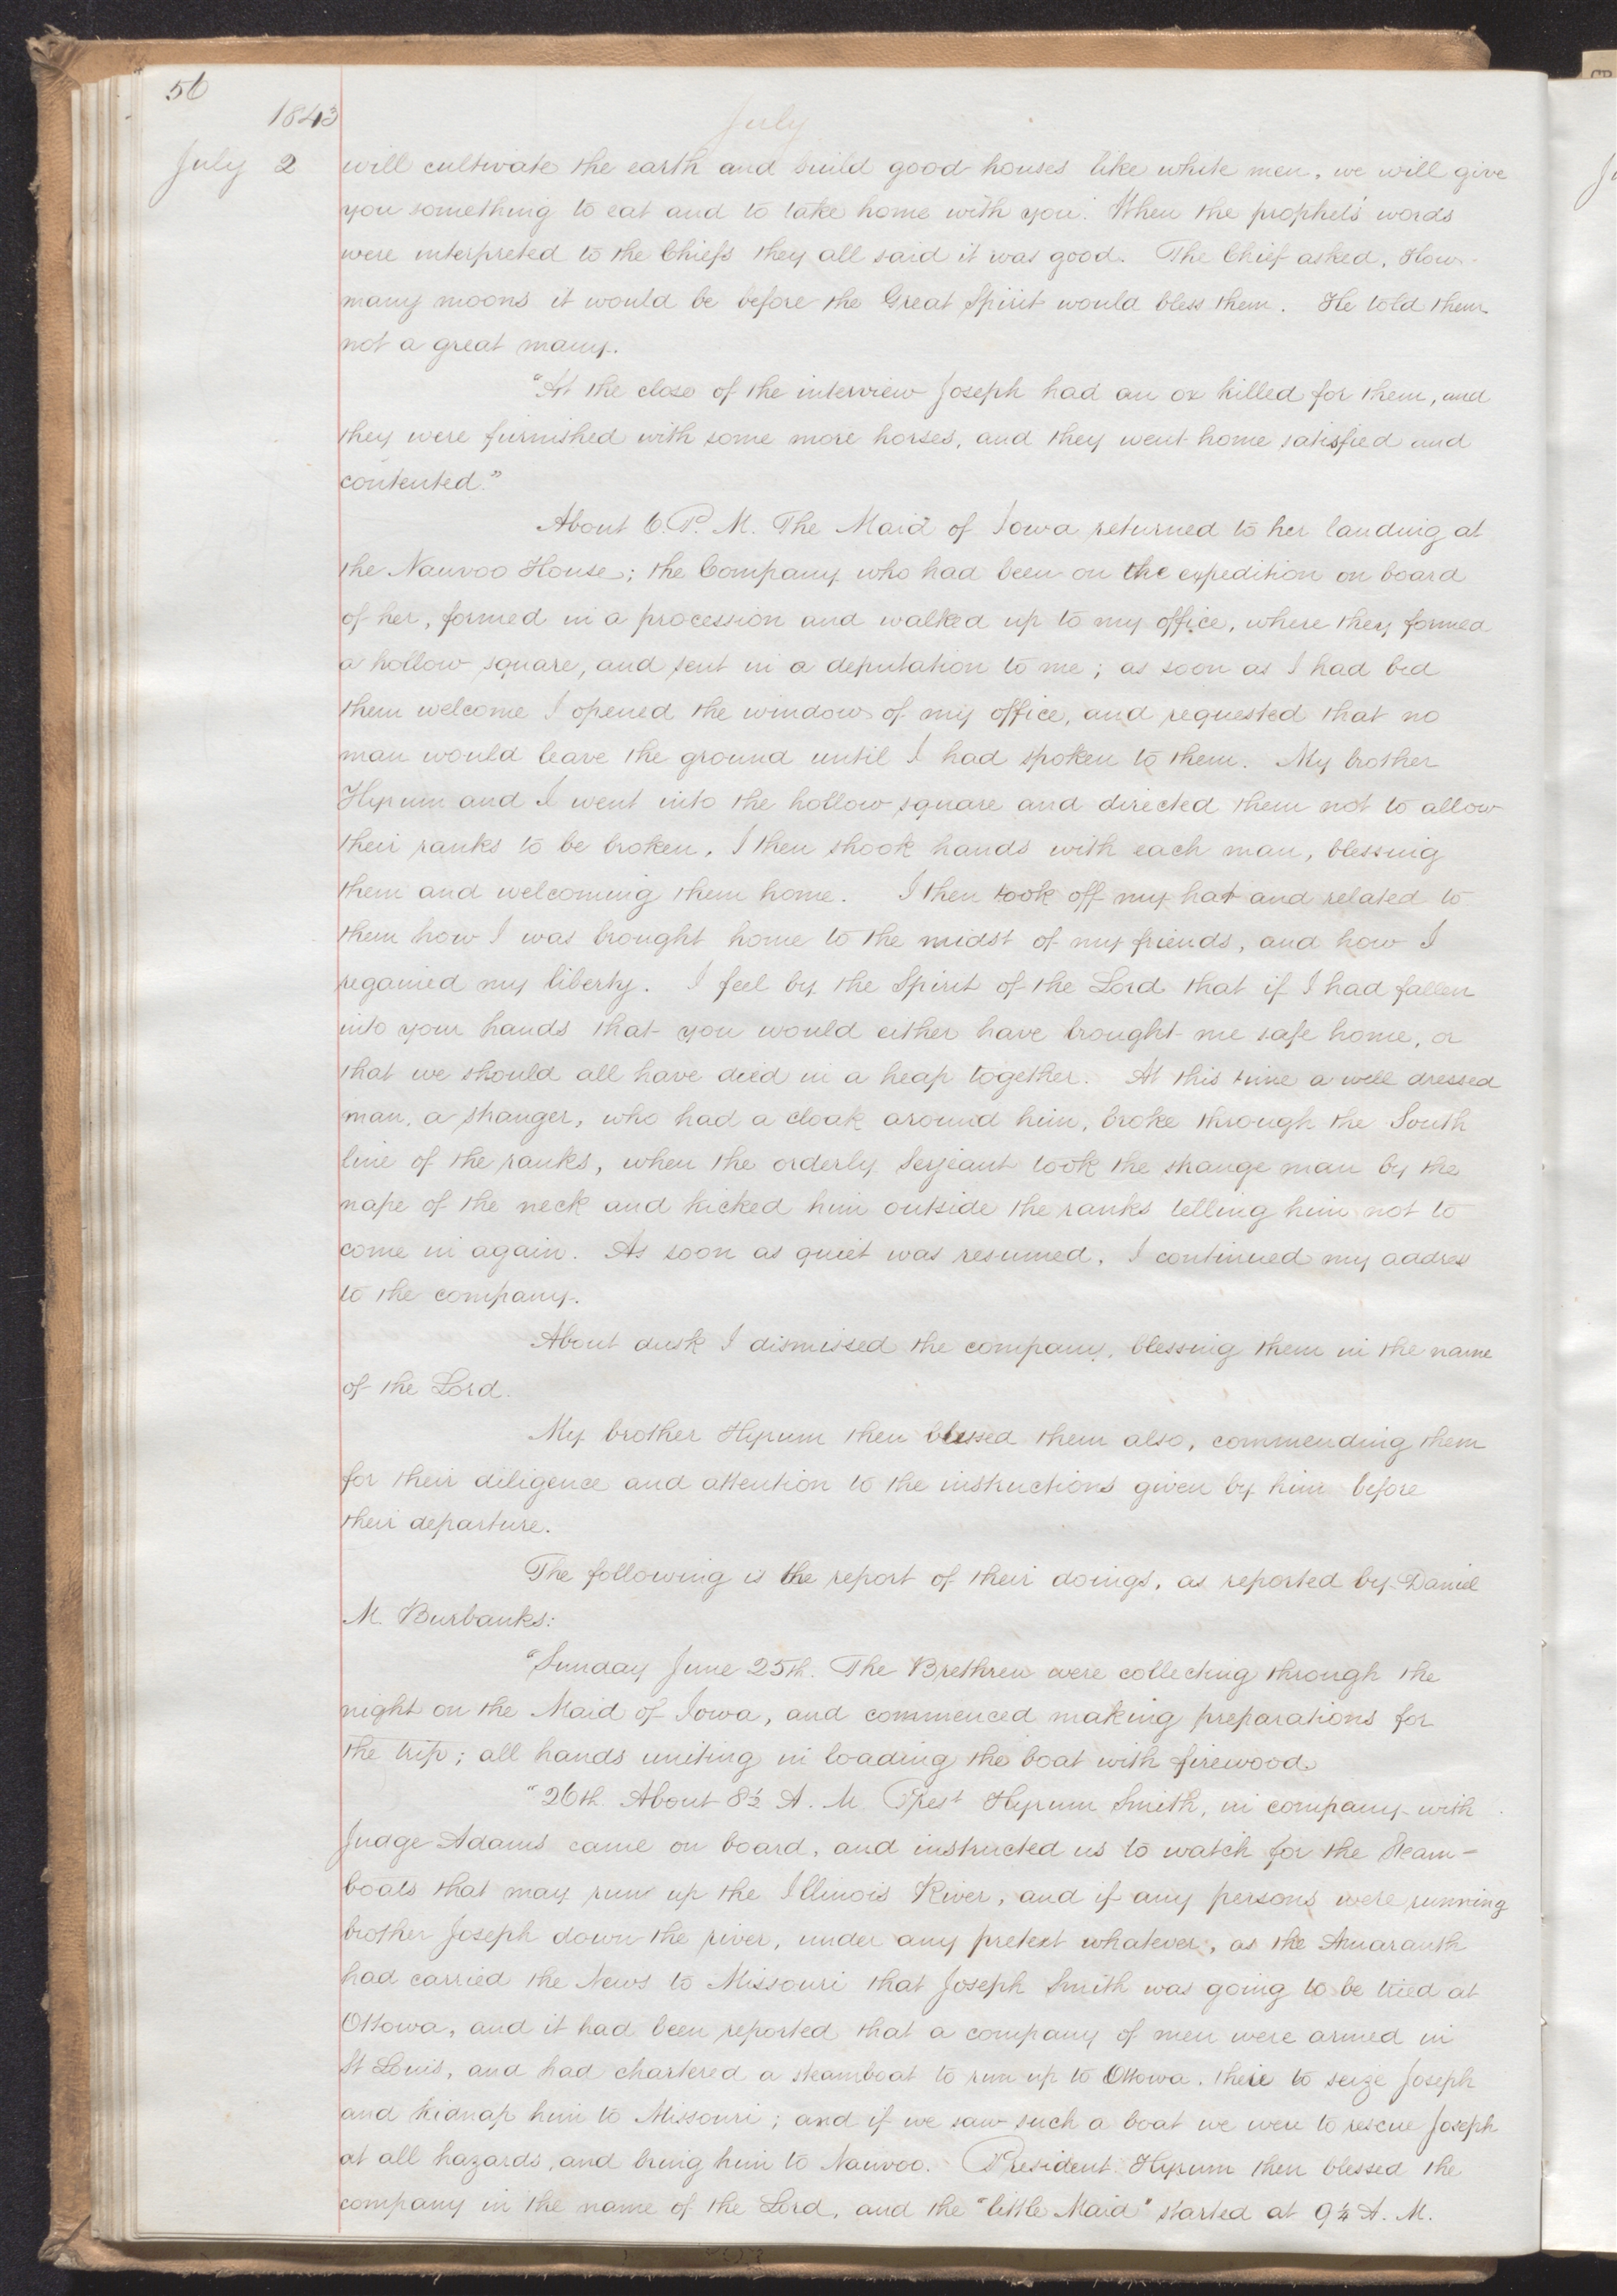 56
1843
July
July 2 will cultivate the earth and build good houses like white men, we will give
you something to eat and to take home with you." When the prophet's words
were interpreted to the Chiefs they all said it was good. The Chief asked, How
many moons it would be before the Great Spirit would bless them. He told them
not a great many.
"At the close of the interview Joseph had an ox killed for them, and
they were furnished with some more horses, and they went home satisfied and
contented."
About 6. P. M. The Maid of Iowa returned to her landing at
the Nauvoo House; the Company who had been on the expedition on board
of her, formed in a procession and walked up to my office, where they formed
a hollow square, and sent in a deputation to me; as soon as I had bid
them welcome I opened the window of my office, and requested that no
man would leave the ground until I had spoken to them. My brother
Hyrum and I went into the hollow square and directed them not to allow
their ranks to be broken, I then shook hands with each man, blessing
them and welcoming them home. I then took off my hat and related to
them how I was brought home to the midst of my friends, and how I
regained my liberty. I feel by the Spirit of the Lord that if I had fallen
into your hands that you would either have brought me safe home, or
that we should all have died in a heap together. At this time a well dressed
man, a stranger, who had a cloak around him, broke through the South
line of the ranks, when the orderly Serjeant took the strange man by the
nape of the neck and kicked him outside the ranks telling him not to
come in again. As soon as quiet was resumed, I continued my address
to the company.
About dusk I dismissed the company, blessing them in the name
of the Lord.
My brother Hyrum then blessed them also, commending them
for their diligence and attention to the instructions given by him before
their departure.
The following is the report of their doings, as reported by Daniel
M. Burbanks:
"Sunday June 25th. The Brethren were collecting through the
night on the Maid of Iowa, and commenced making preparations for
the trip; all hands uniting in loading the boat with firewood
"26th About 8½ A. M. Prest Hyrum Smith, in company with
Judge Adams came on board, and instructed us to watch for the Steam-
boats that may run up the Illinois River, and if any persons were running
brother Joseph down the river, under any pretext whatever, as the Amaranth
had carried the News to Missouri that Joseph Smith was going to be tried at
Ottowa, and it had been reported that a company of men were armed in
St Louis, and had chartered a steamboat to run up to Ottowa, there to seize Joseph
and kidnap him to Missouri; and if we saw such a boat we were to rescue Joseph
at all hazards, and bring him to Nauvoo. President Hyrum then blessed the
company in the name of the Lord, and the "little Maid" started at 9¼ A. M.